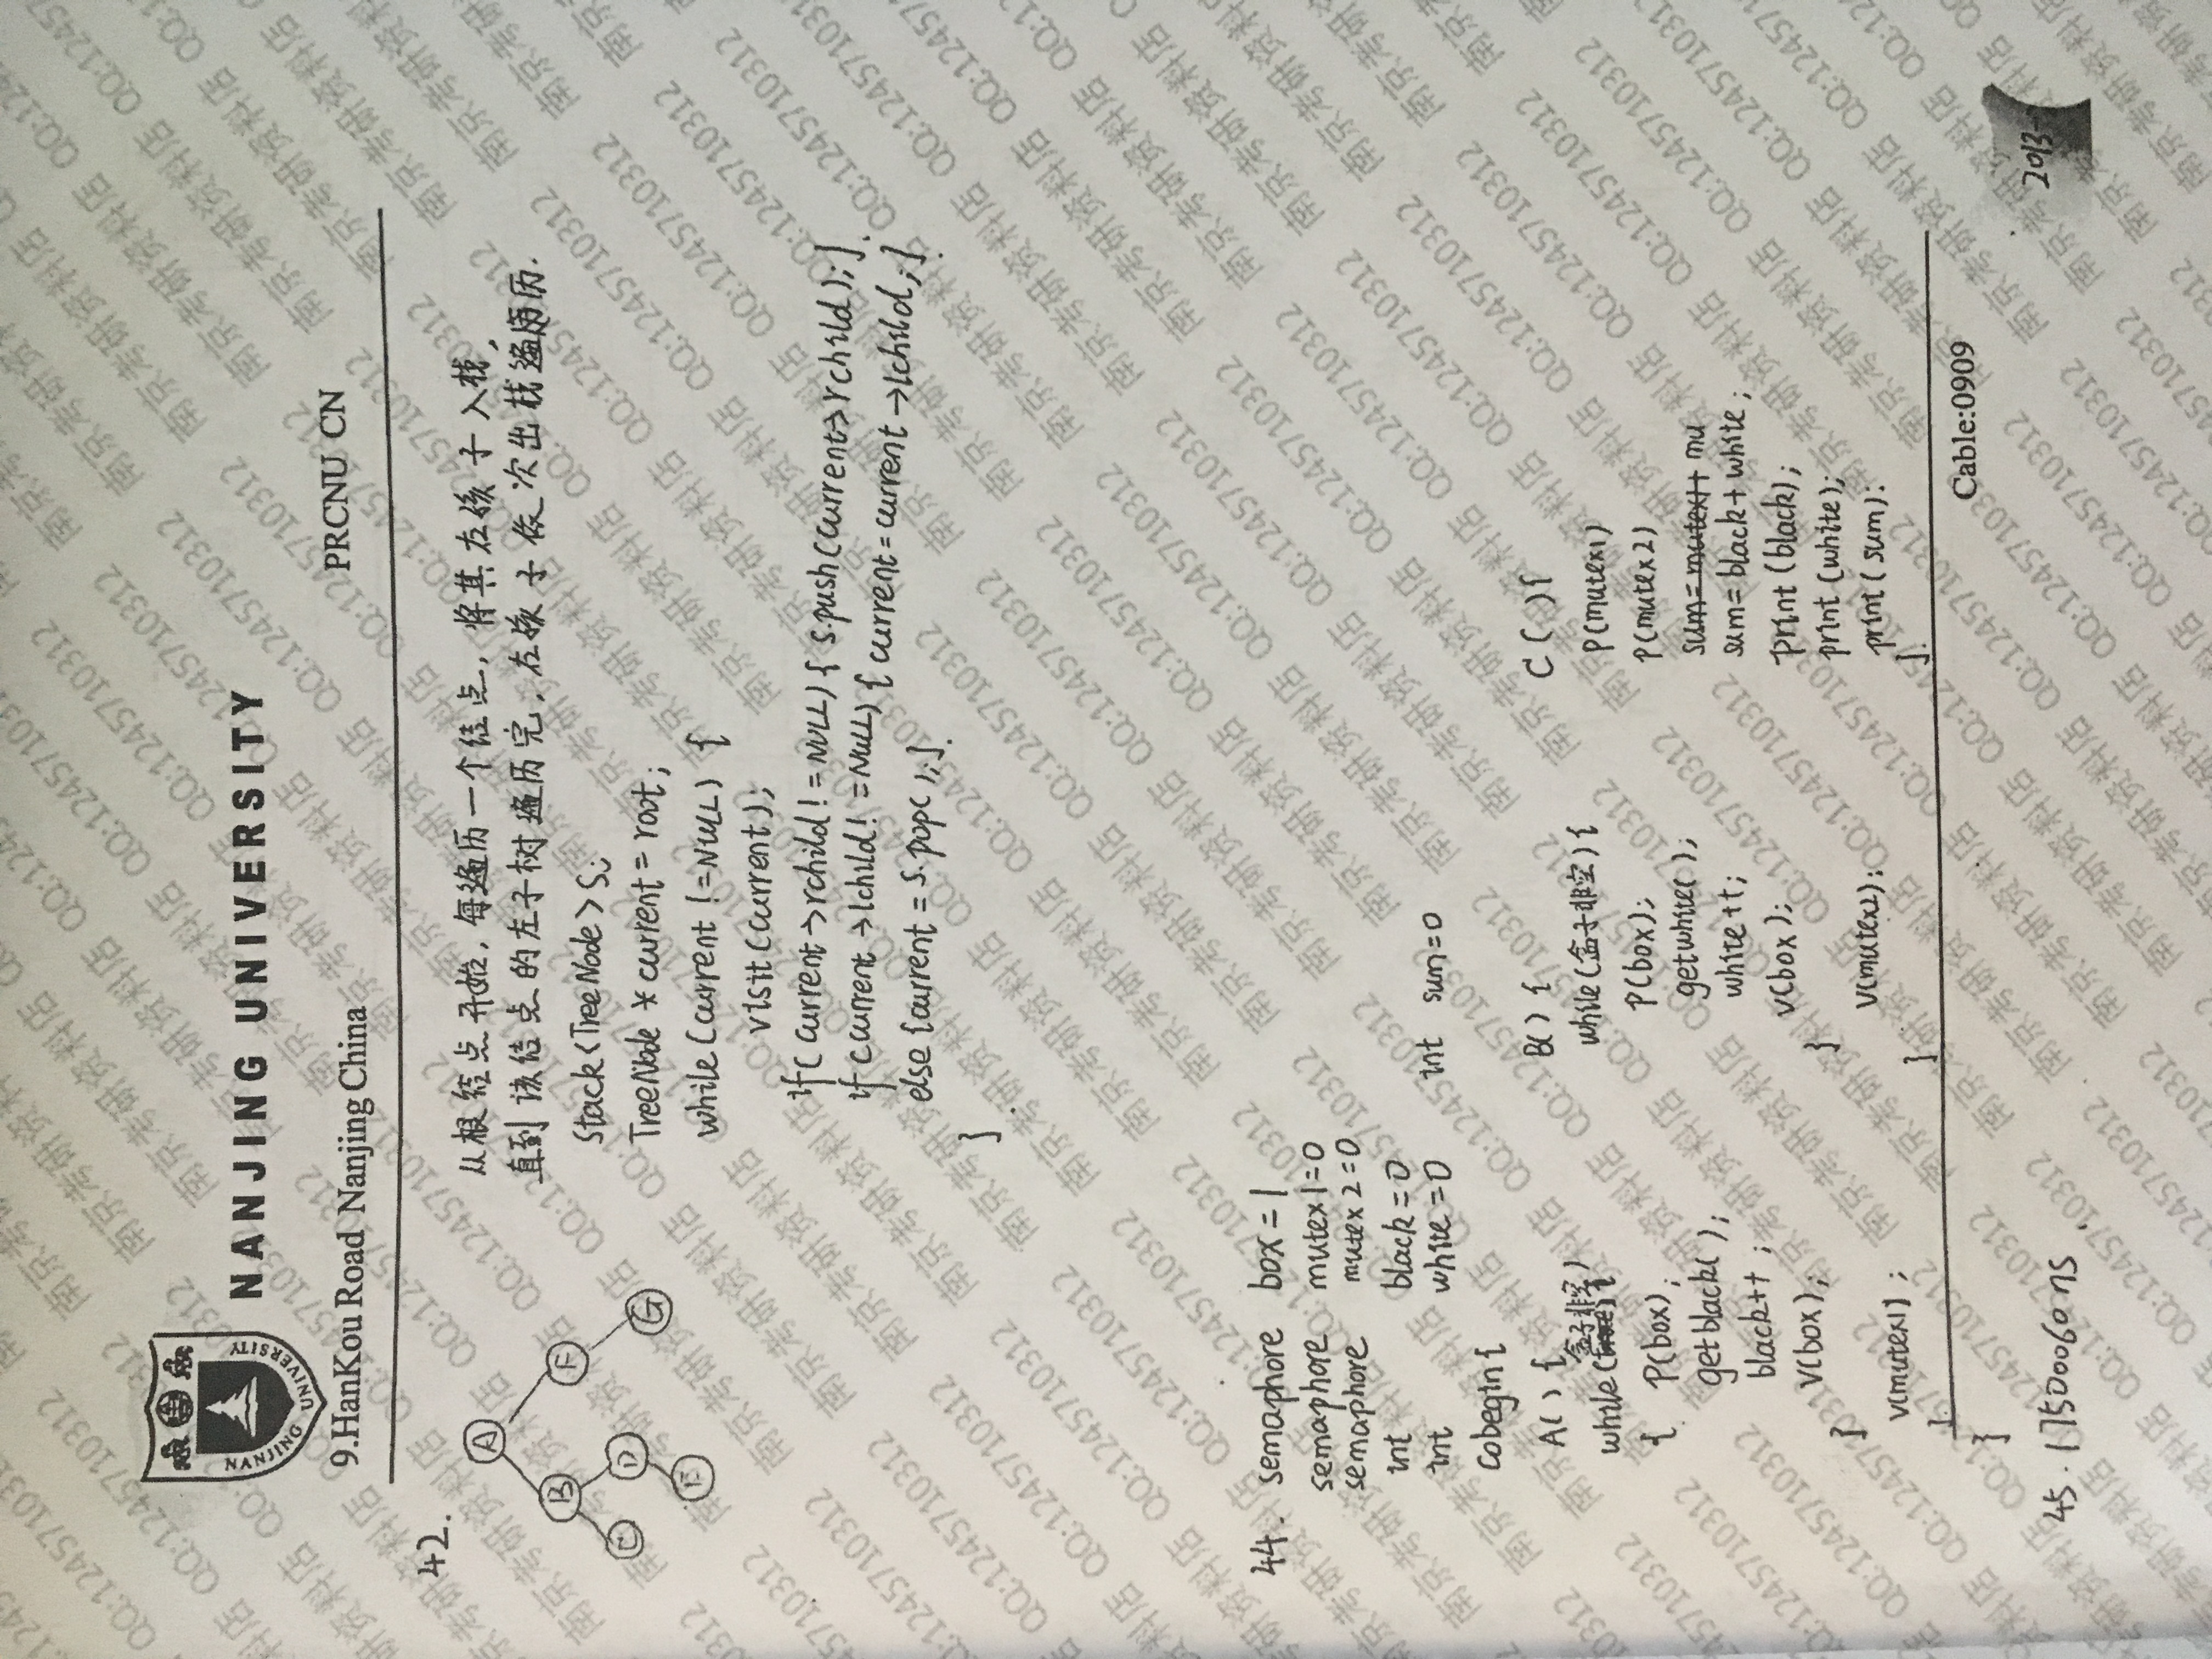 NANJING UNIVERSITY
NANJING UNIVERSITY
9.HanKou Road Nanjing China
PRCNU CN
42.
A
B
F
C
D
G
E
从根结点开始，每遍历一个结点，将其右孩子入栈，
直到该结点的左子树遍历完，右孩子依次出栈遍历.
Stack<TreeNode>S;
TreeNode *current=root;
while(current !=NULL) {
visit(current);
if(current→rchild!=NULL){ S.push(current→rchild);}
if(current→lchild!=NULL){current=current→lchild;}
else {current=S.pop();}
}
44. semaphore box=1
semaphore mutex1=0
semaphore mutex2=0
int black=0
int white=0 int sum=0
cobegin{
A() {
while(盒子非空)
{ P(box);
getblack();
black++;
V(box);
}
V(mutex1);
}
B() {
while(盒子非空){
P(box);
getwhite();
white++;
V(box);
}
V(mutex2);
}
C(){
P(mutex1)
P(mutex2)
sum=mutex1+ mu
sum=black+white;
print(black);
print(white);
print(sum):
}
}
Cable:0909
45.17500060ns.
2013-
南京考研资料店 QQ:1245710312